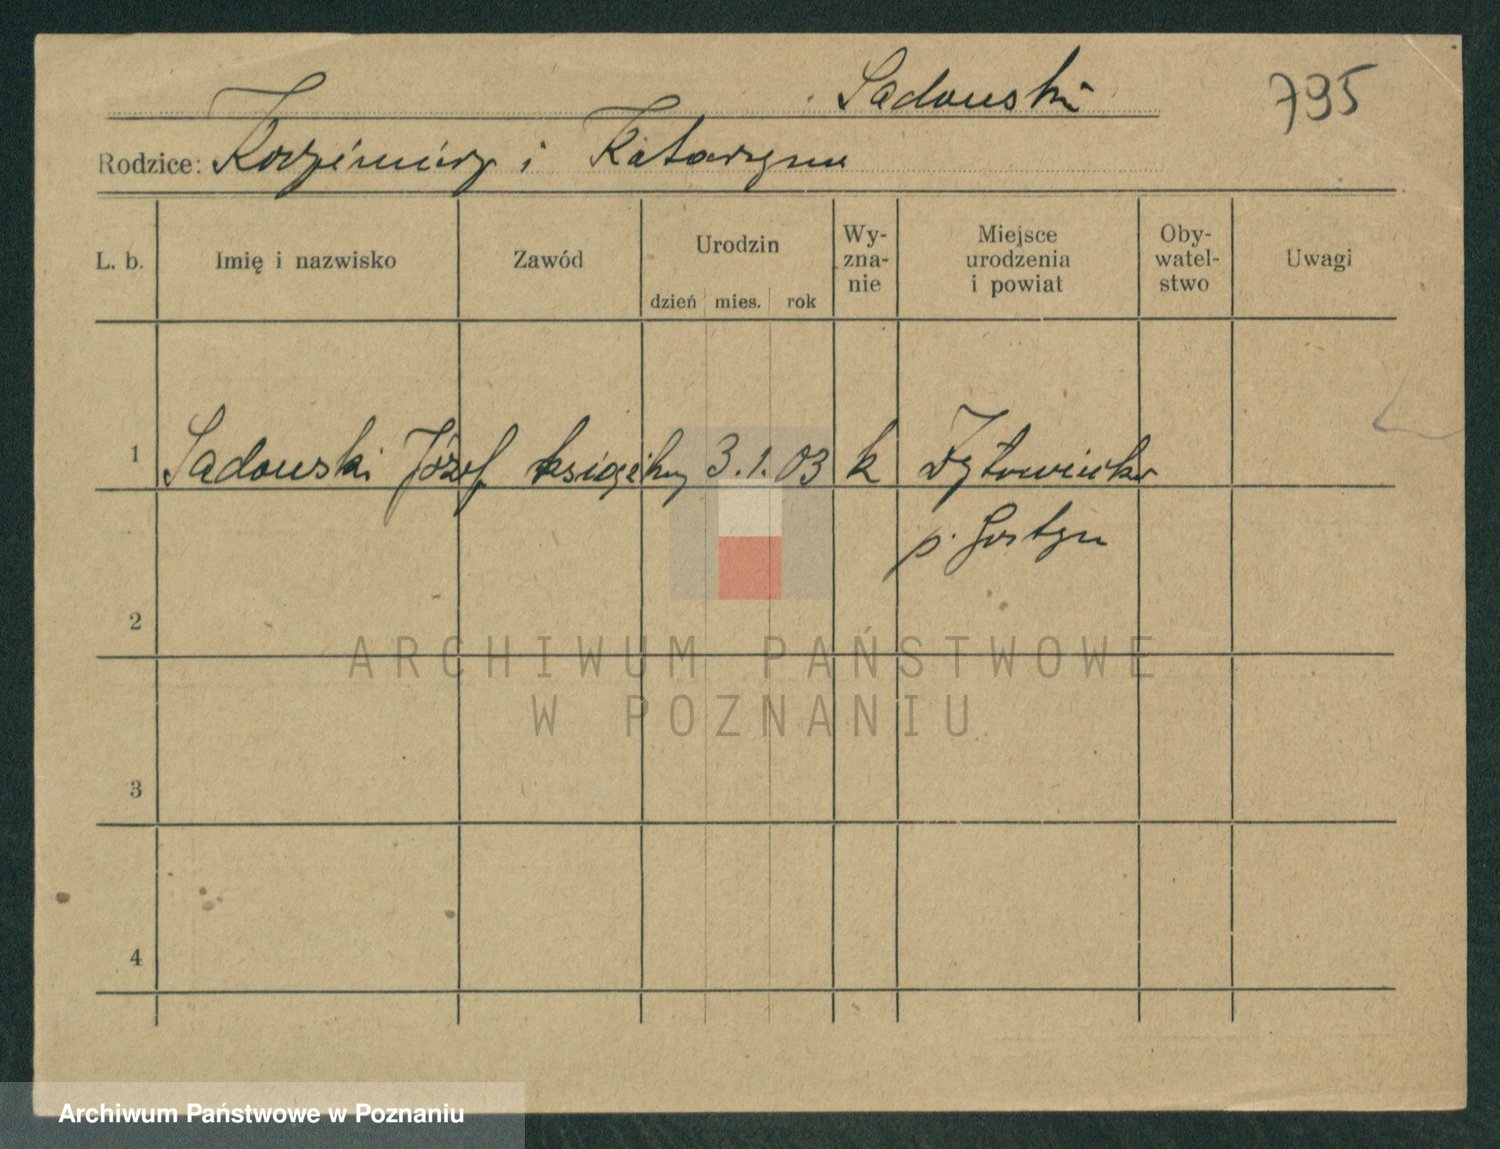 Sadowski
795
Rodzice: Kazimierz i Katarzyna
L. b.
Imię i nazwisko
Zawód
Urodzin
dzień mies. rok
Wy-
zna-
nie
Miejsce
urodzenia
i powiat
Oby-
watel-
stwo
Uwagi
1 Sadowski Józef 3. 1. 03 k
p. Gostyń
2
3
4
ARCHIWUM PAŃSTWOWE
W POZNANIU
Archiwum Państwowe w Poznaniu